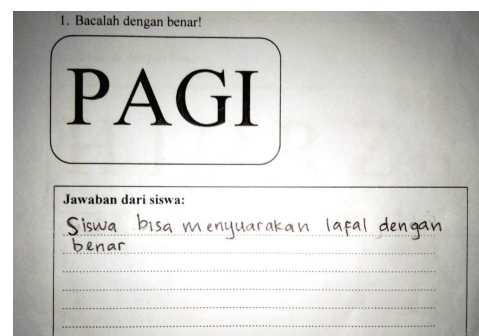 1. Bacalah dengan benar!
PAGI
Jawaban dari siswa:
Siswa bisa menyuarakan lafal dengan
benar